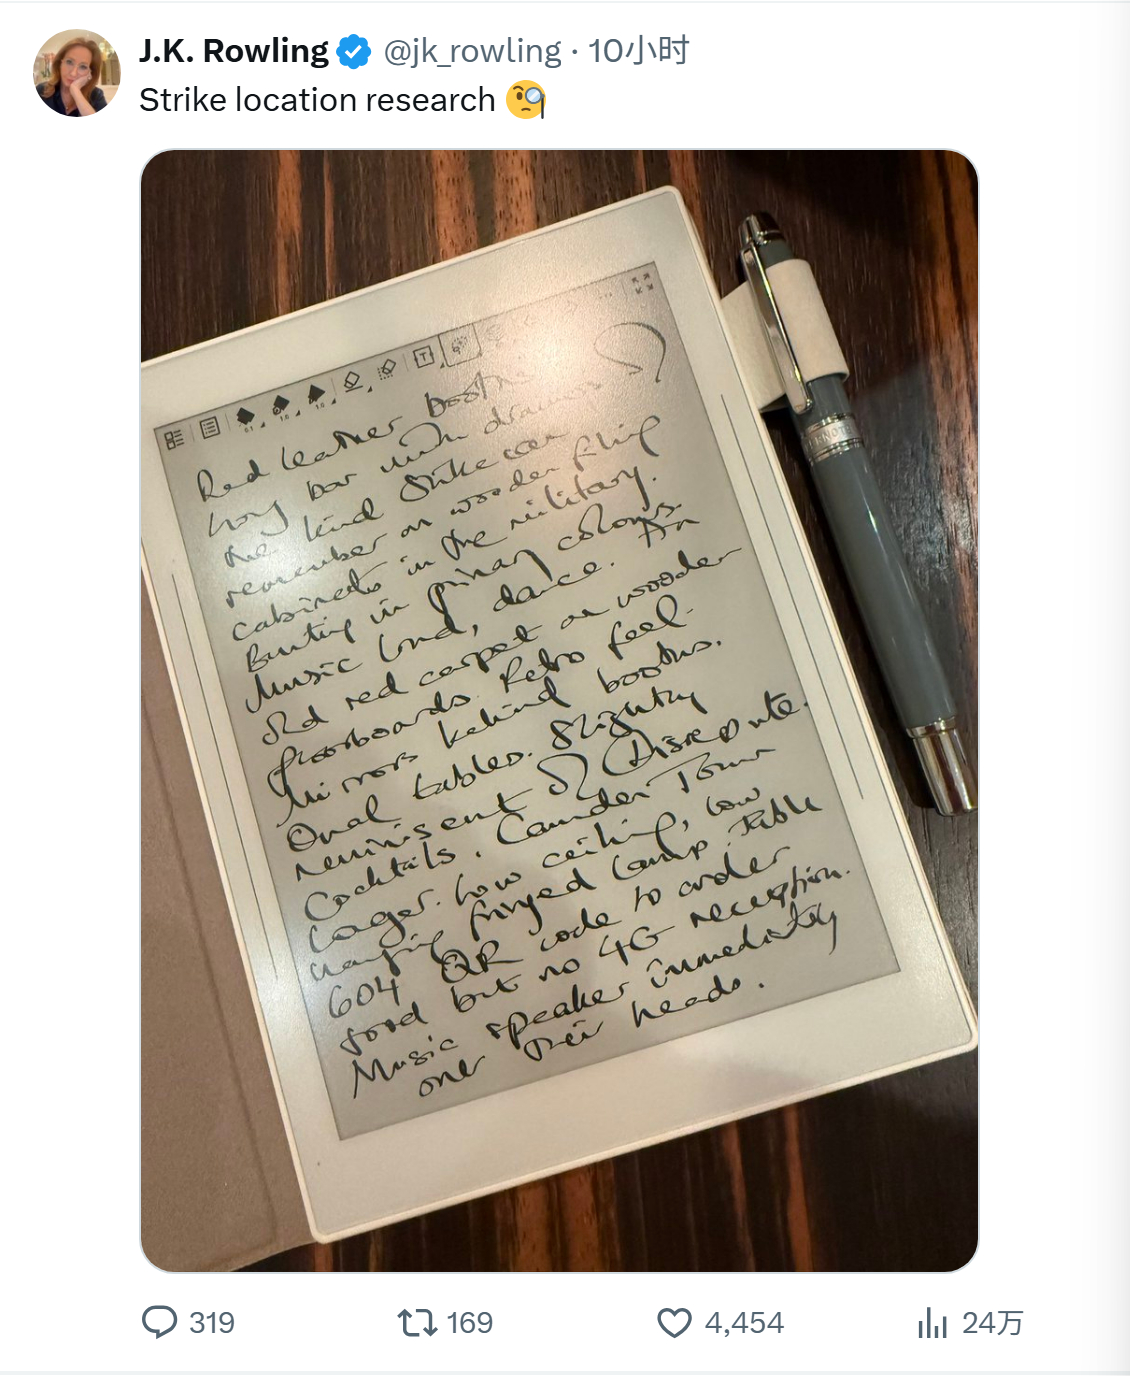 J.K. Rowling @jk_rowling · 10小时
Strike location research
T
Red leather booths
long bar with drawers
the kind Strike can
remember on wooden filing
cabinets in the military.
Bunting in primary colours.
Music loud, dance. An
old red carpet on wooden
floorboards. Retro feel.
Mirrors behind booths.
Oval tables. Slightly
reminiscent of Disrepute.
Cocktails. Camden Town
Lager. Low ceiling, low
hanging fringed lamp. Table
604 QR code to order
food but no 4G reception.
Music speaker immediately
over their heads.
319 169 4,454 24万